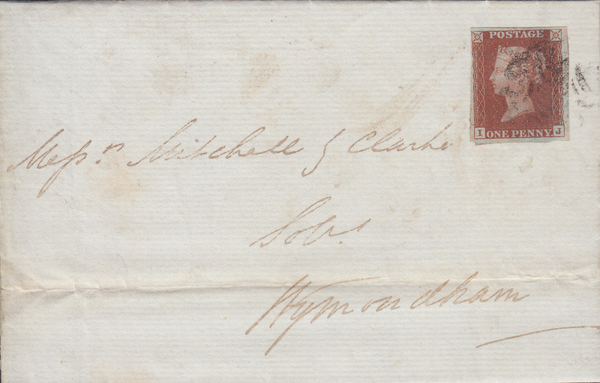 POSTAGE
I ONE PENNY J
Messrs Mitchell & Clarke
Solrs
Wymondham